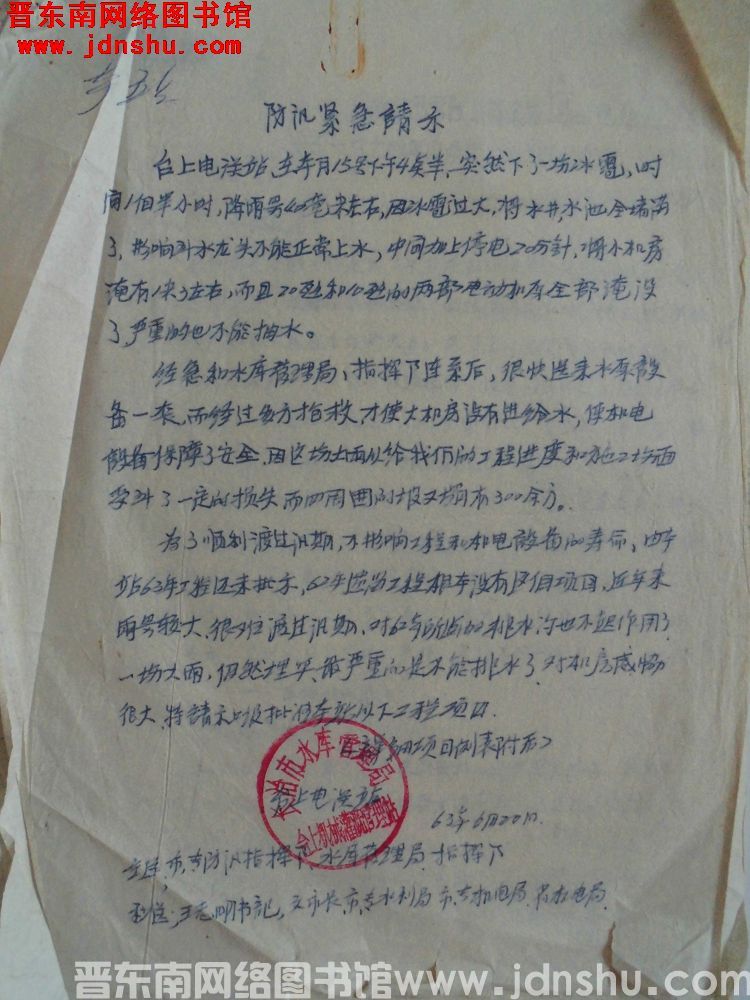 晋东南网络图书馆
www.jdnshu.com
防汛紧急請示
台上电灌站,在本月15号下午4矣半,突然下了一场冰雹,时
间1個半小时,降雨量40毫米左右,因冰雹过大,将水井水池全墙满
了,影响 水龙头不能正常上水,中间加上停电20分針,将水机房
淹有1米了左右,而且20 和10 的两部电动机 全部淹没
了,严重的也不能抽水。
经急和水库管理局、指挥下连系后,很快送来水 設
备一套,而经过多方抢救,才使大机房没有进给水,使机电
設备保障了安全,因这场大雨 给我们的工程进度和施工场面
受到了一定的损失而四周围的坡又塌有300余方。
为了顺利渡过汛期,不影响工程和机电設备的寿命,由本
站63年工程还未批示,62年 工程根本没有这個项目,近年来
雨量较大,很难渡过汛期,对62年所 的排水沟也不起作用了
一场大雨,仍然埋 最严重的是不能排水了对机房威胁
很大,特請示上级批 本站以下工程项目.
(工程 项目例表附后)
台上电灌站
63年6月20日.
长治市水库管理局
台上机械灌溉管理站
主送,市、专防汛指挥下、水库管理局、指挥下
王志明书记, 市长,市、专水利局 市、专机电局
晋东南网络图书馆www.jdnshu.com